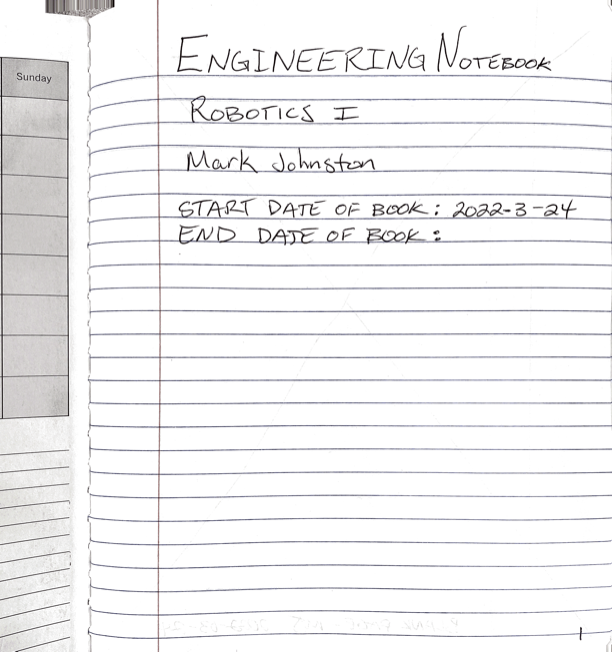 Sunday
ENGINEERING NOTEBOOK
ROBOTICS I
Mark Johnston
START DATE OF BOOK: 2022-3-24
END DATE OF BOOK:
1